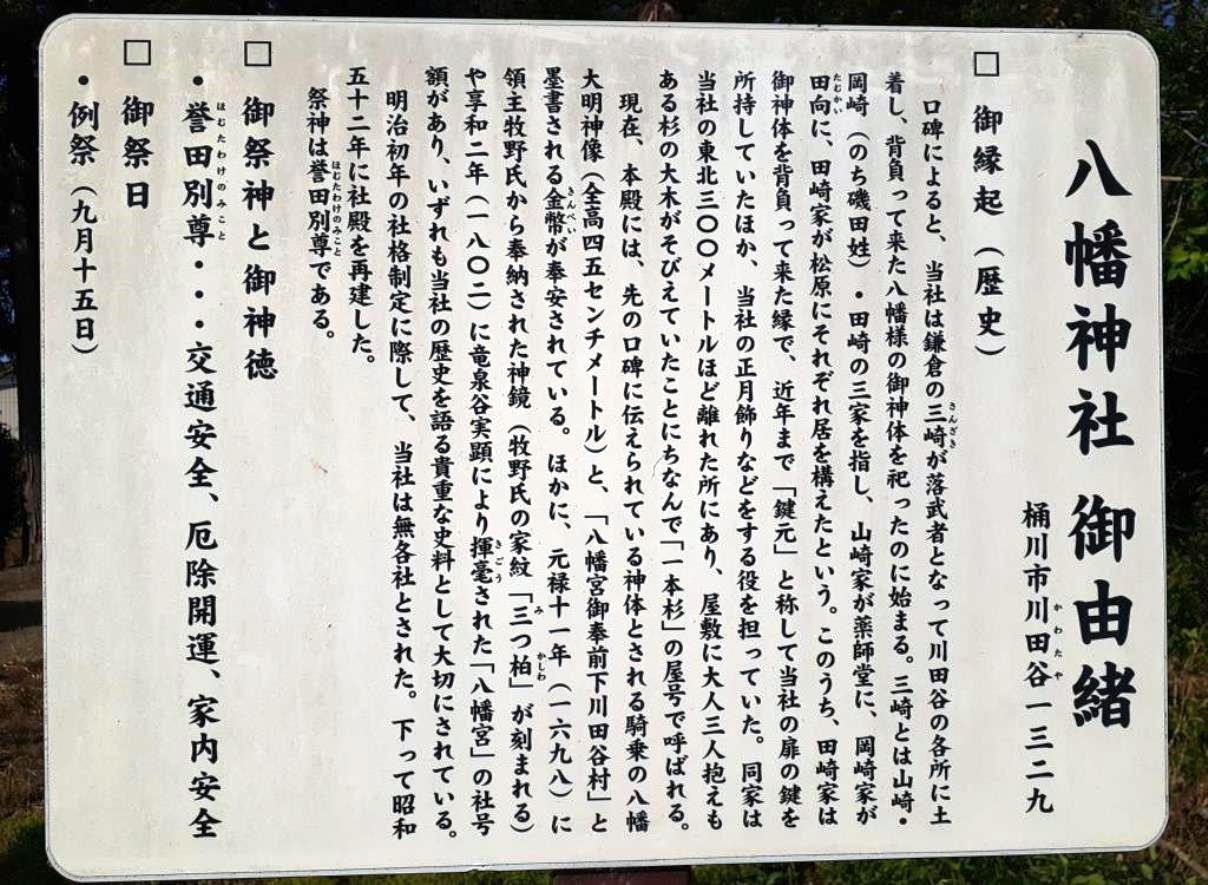 八幡神社 御由緒
桶川市川田谷一三二九
かわたや
□ 御縁起(歴史)
口碑によると、当社は鎌倉の三崎が落武者となって川田谷の各所に土
さんざき
着し、背負って来た八幡様の御神体を祀ったのに始まる。三崎とは山崎・
岡崎(のち磯田姓)・田崎の三家を指し、山崎家が薬師堂に、岡崎家が
田向に、田崎家が松原にそれぞれ居を構えたという。このうち、田崎家は
たむかい
御神体を背負って来た縁で、近年まで「鍵元」と称して当社の扉の鍵を
所持していたほか、当社の正月飾りなどをする役を担っていた。同家は
当社の東北三〇〇メートルほど離れた所にあり、屋敷に大人三人抱えも
ある杉の大木がそびえていたことにちなんで「一本杉」の屋号で呼ばれる。
現在、本殿には、先の口碑に伝えられている神体とされる騎乗の八幡
大明神像(全高四五センチメートル)と、「八幡宮御奉前下川田谷村」と
墨書される金幣が奉安されている。ほかに、元禄十一年(一六九八)に
きんぺい
領主牧野氏から奉納された神鏡(牧野氏の家紋「三つ柏」が刻まれる)
み かしわ
や享和二年(一八〇二)に竜泉谷実顕により揮毫された「八幡宮」の社号
きごう
額があり、いずれも当社の歴史を語る貴重な史料として大切にされている。
明治初年の社格制定に際して、当社は無各社とされた。下って昭和
五十二年に社殿を再建した。
祭神は誉田別尊である。
ほむたわけのみこと
□ 御祭神と御神徳
・誉田別尊・・・交通安全、厄除開運、家内安全
ほむたわけのみこと
□ 御祭日
・例祭(九月十五日)